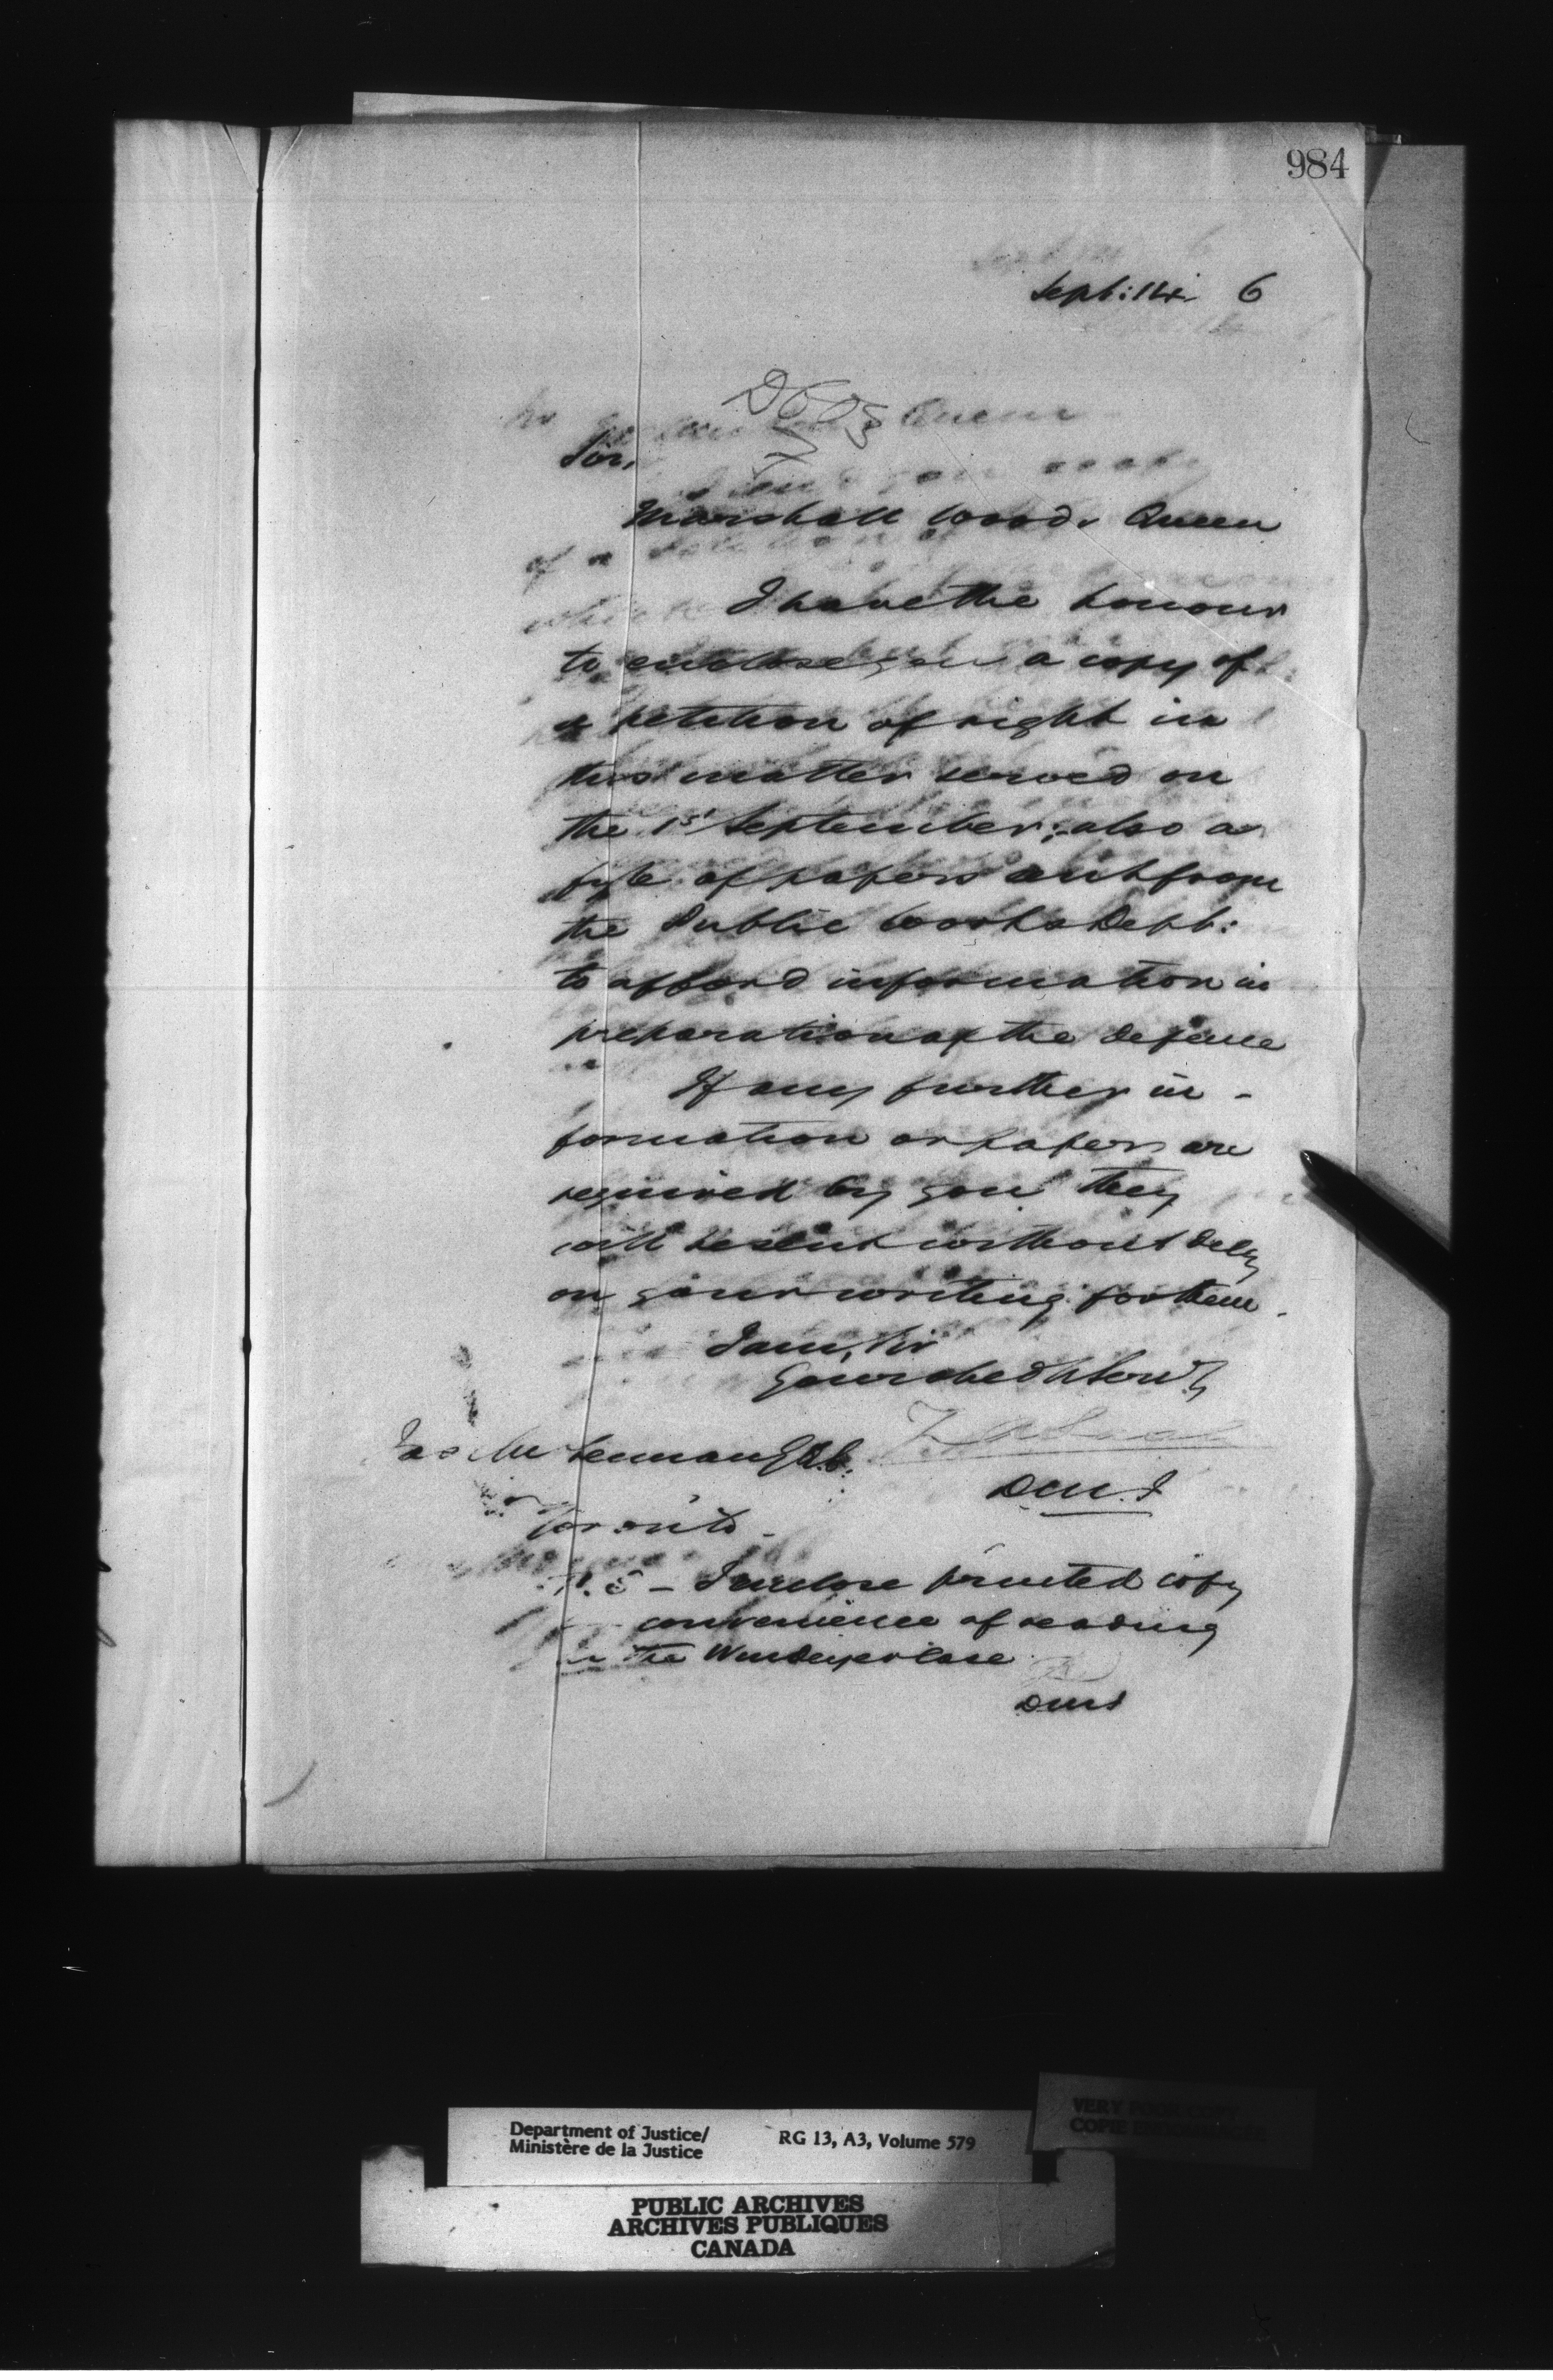 984
Sept: 14 6
Sir,
Marshall Wood v Queen
I have the honour
to enclose you a copy of
a petition of right in
this matter served on
the 1st September; also a
fyle of papers sent from
the Public Works Dept:
to afford information in
preparation of the defence
If any further in-
formation or papers are
required by you they
will be sent without delay
on your writing for them.
I am, Sir
Your obed't Serv't
Jas McLennan Q.C.
D.M.J
Toronto.
P.S - I enclose printed copy
for convenience of reading
in the Windeyer Case
DMJ
Department of Justice/
Ministère de la Justice
RG 13, A3, Volume 579
VERY POOR COPY
COPIE
PUBLIC ARCHIVES
ARCHIVES PUBLIQUES
CANADA